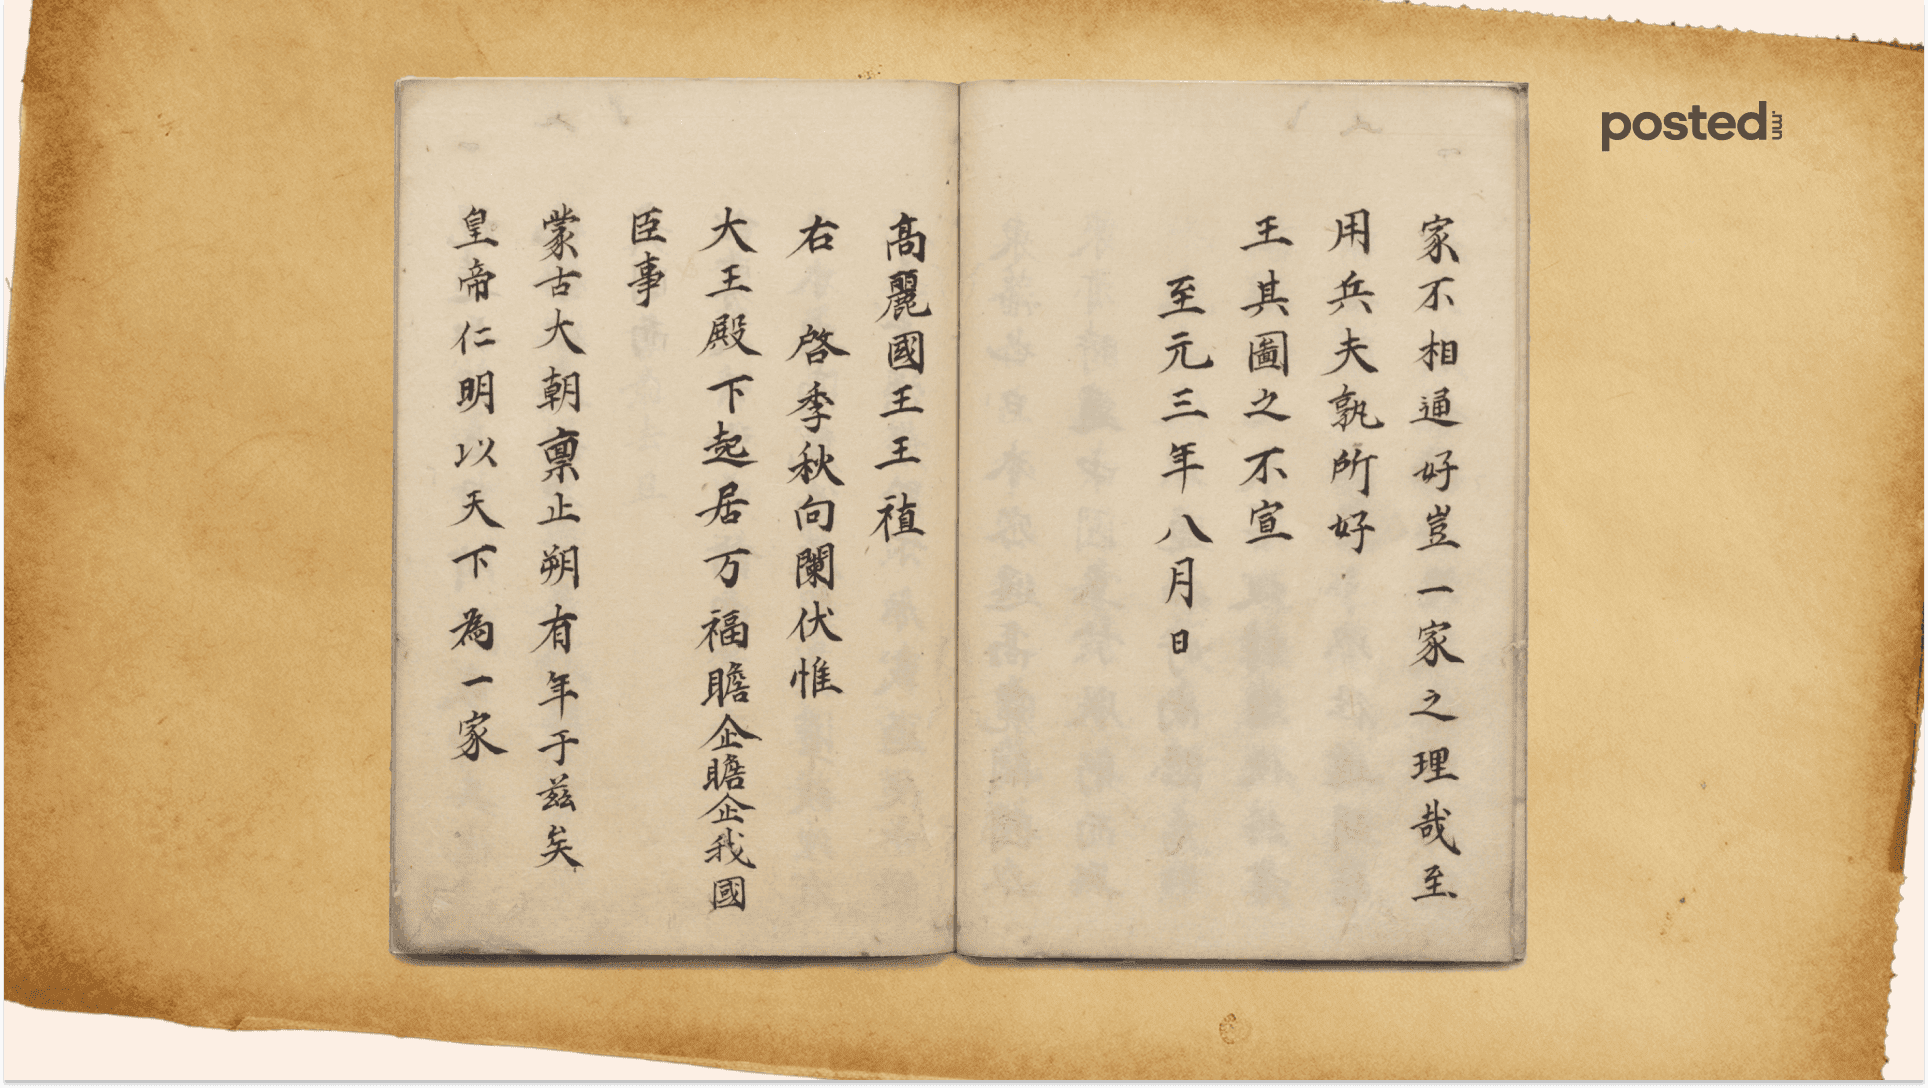 家不相通好豈一家之理哉至
用兵夫孰所好
王其圖之不宣
至元三年八月日
高麗國王王禃
右 啓季秋向闌伏惟
大王殿下起居万福瞻企瞻企我國
臣事
蒙古大朝禀止朔有年于茲矣
皇帝仁明以天下為一家
posted.mn